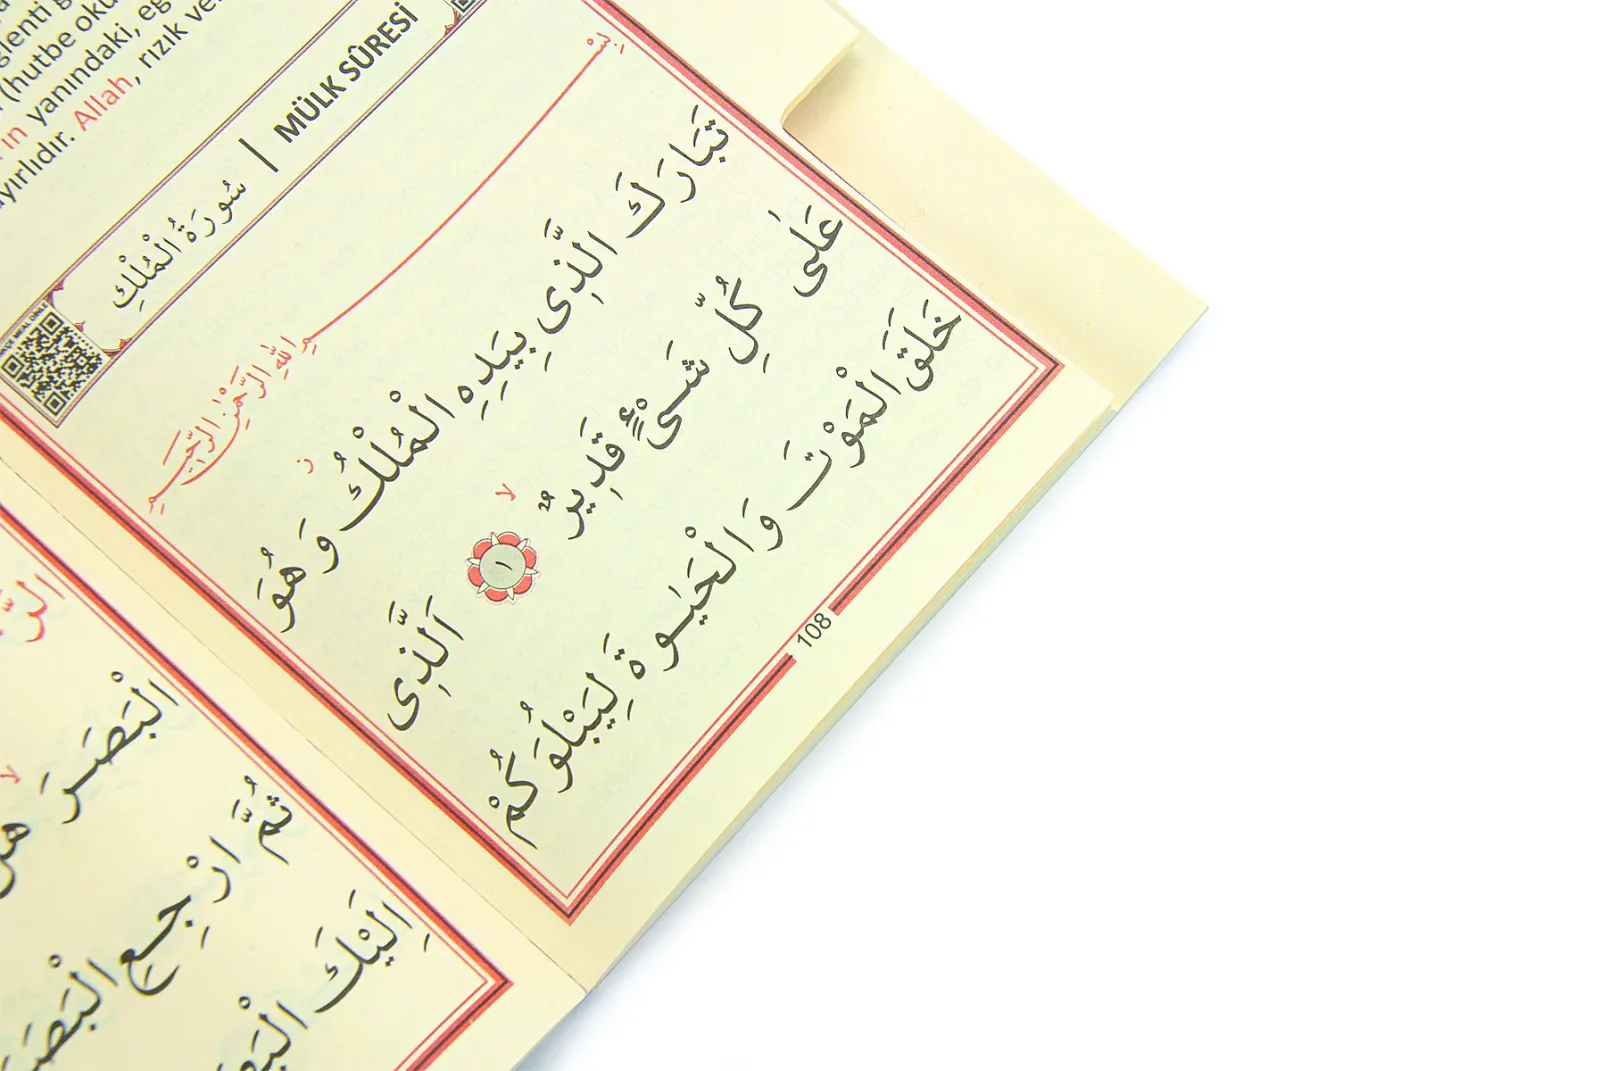 glenti
(hutbe oku
'ın yanındaki, eğ
ayırlıdır. Allah, rızık ve
سُورَةُ الْمُلْكِ | MÜLK SÛRESİ
بِسْمِ اللّٰهِ الرَّحْمٰنِ الرَّحٖيمِ
تَبَارَكَ الَّذٖى بِيَدِهِ الْمُلْكُ ز وَهُوَ
عَلٰى كُلِّ شَىْءٍ قَدٖيرٌ لا ١ اَلَّذٖى
خَلَقَ الْمَوْتَ وَالْحَيٰوةَ لِيَبْلُوَكُمْ
108
الْبَصَرَ لا هَلْ
ثُمَّ ارْجِعِ الْبَصَ
اِلَيْكَ الْبَصَ